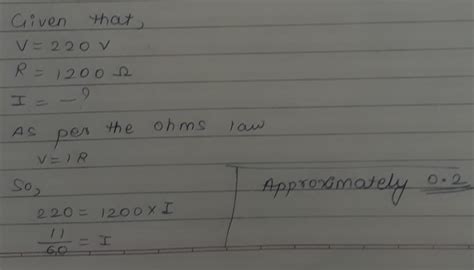 Given that,
V = 220 V
R = 1200 Ω
I = - ?
As per the ohms law
V = IR
So,
220 = 1200 × I
11/60 = I
Approximately 0.2